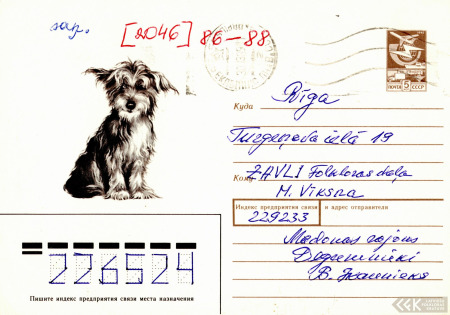 зар. [2046] 86-88
ПОЧТА 5 СССР
Куда Rīga
Turgeņeva ielā 19
Кому ZAVLI Folkloras daļa
M. Vīksna
Индекс предприятия связи и адрес отправителя
229233
Madonas rajons
Degumnieki
B.
226524
Пишите индекс предприятия связи места назначения